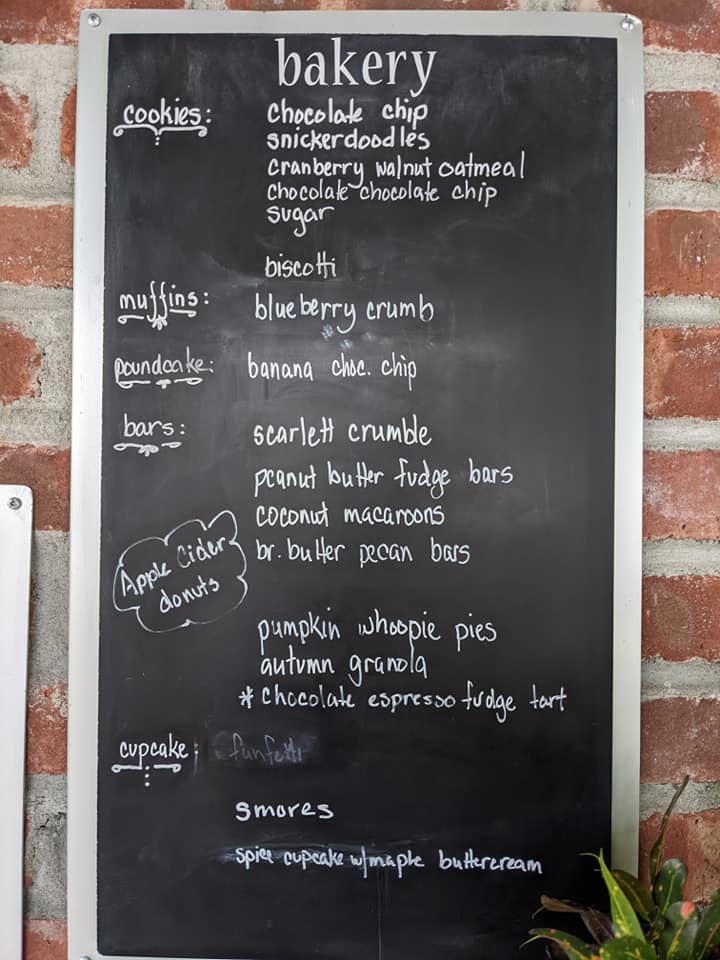 bakery
cookies: chocolate chip
snickerdoodles
cranberry walnut oatmeal
chocolate chocolate chip
sugar
biscotti
muffins: blueberry crumb
poundcake: banana choc. chip
bars: scarlett crumble
peanut butter fudge bars
coconut macaroons
br. butter pecan bars
Apple Cider
donuts
pumpkin whoopie pies
autumn granola
* chocolate espresso fudge tart
cupcake: funfetti
smores
spice cupcake w/maple buttercream